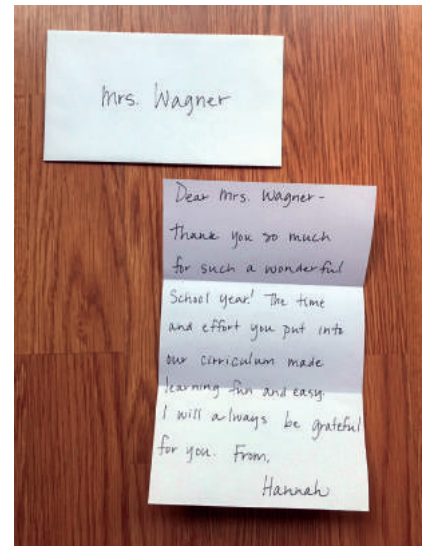 Mrs. Wagner
Dear Mrs. Wagner-
Thank you so much
for such a wonderful
School year! The time
and effort you put into
our cirriculum made
learning fun and easy.
I will always be grateful
for you. From,
Hannah